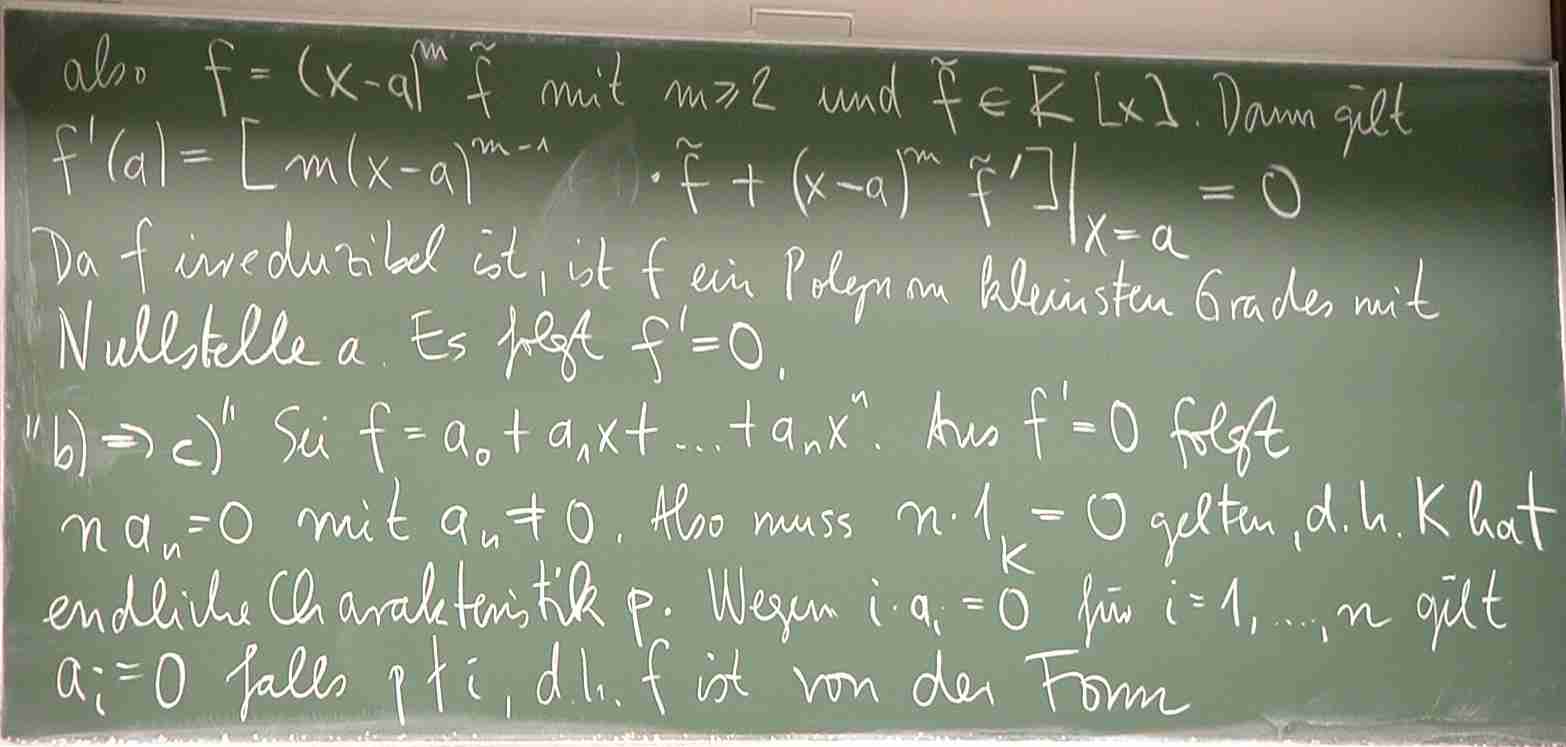 also f = (x-a)^m f̃ mit m ≥ 2 und f̃ ∈ K̄ [x]. Dann gilt
f'(a) = [m(x-a)^{m-1} · f̃ + (x-a)^m f̃']|_{x=a} = 0
Da f irreduzibel ist, ist f ein Polynom kleinsten Grades mit
Nullstelle a. Es folgt f' = 0.
"b) ⇒ c)" Sei f = a_0 + a_1 x + ... + a_n x^n. Aus f' = 0 folgt
n a_n = 0 mit a_n ≠ 0. Also muss n · 1_K = 0 gelten, d.h. K hat
endliche Charakteristik p. Wegen i · a_i = 0 für i = 1, ..., n gilt
a_i = 0 falls p ∤ i, d.h. f ist von der Form